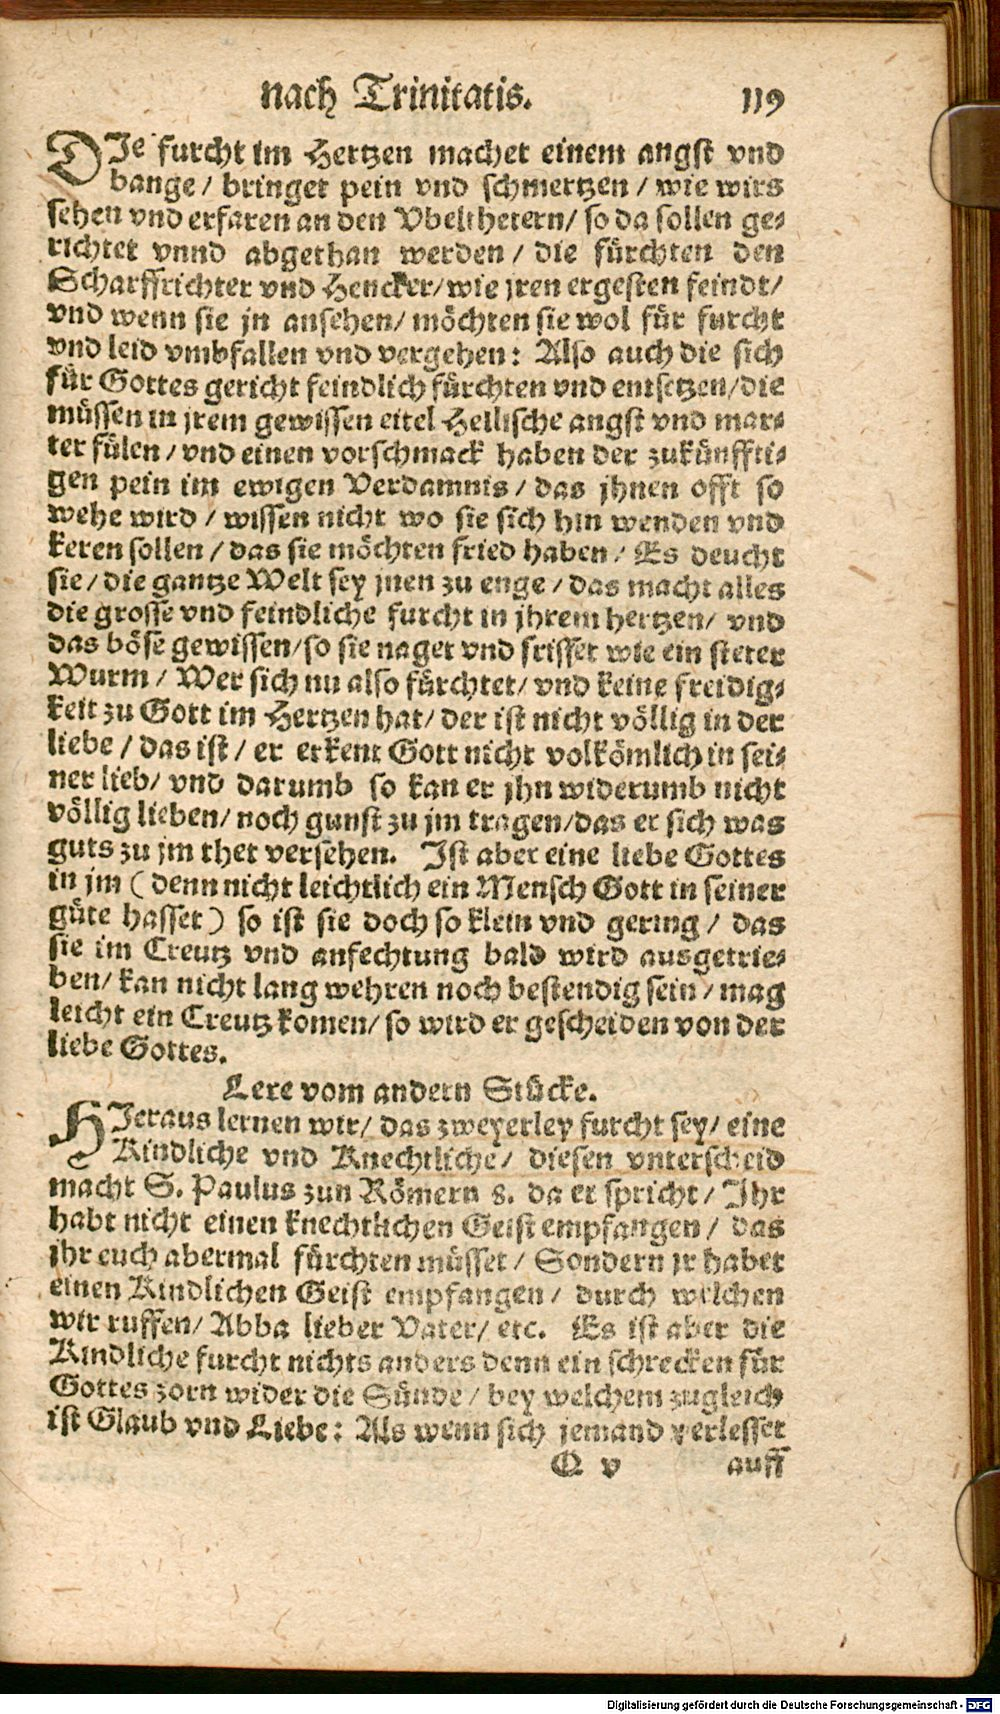 nach Trinitatis. 119
DIe furcht im Hertzen machet einem angst vnd
bange / bringet pein vnd schmertzen / wie wirs
sehen vnd erfaren an den Vbelthetern / so da sollen ge-
richtet vnnd abgethan werden / die fürchten den
Scharffrichter vnd Hencker / wie jren ergesten feindt /
vnd wenn sie jn ansehen / möchten sie wol für furcht
vnd leid vmbfallen vnd vergehen: Also auch die sich
für Gottes gericht feindlich fürchten vnd entsetzen / die
müssen in jrem gewissen eitel Hellische angst vnd mar-
ter fülen / vnd einen vorschmack haben der zukünffti-
gen pein im ewigen Verdamnis / das jhnen offt so
wehe wird / wissen nicht wo sie sich hin wenden vnd
keren sollen / das sie möchten fried haben / Es deucht
sie / die gantze Welt sey jnen zu enge / das macht alles
die grosse vnd feindliche furcht in jhrem hertzen / vnd
das böse gewissen / so sie naget vnd frisset wie ein steter
Wurm / Wer sich nu also fürchtet / vnd keine freidig-
keit zu Gott im Hertzen hat / der ist nicht völlig in der
liebe / das ist / er erkent Gott nicht volkömlich in sei-
ner lieb / vnd darumb so kan er jhn widerumb nicht
völlig lieben / noch gunst zu jm tragen / das er sich was
guts zu jm thet versehen. Ist aber eine liebe Gottes
in jm ( denn nicht leichtlich ein Mensch Gott in seiner
güte hasset ) so ist sie doch so klein vnd gering / das
sie im Creutz vnd anfechtung bald wird ausgetrie-
ben / kan nicht lang wehren noch bestendig sein / mag
leicht ein Creutz komen / so wird er gescheiden von der
liebe Gottes.
Lere vom andern Stücke.
HIeraus lernen wir / das zweyerley furcht sey / eine
Kindliche vnd Knechtliche / diesen vnterscheid
macht S. Paulus zun Römern 8. da er spricht / Ihr
habt nicht einen knechtlichen Geist empfangen / das
jhr euch abermal fürchten müsset / Sondern jr habet
einen Kindlichen Geist empfangen / durch welchen
wir ruffen / Abba lieber Vater / etc. Es ist aber die
Kindliche furcht nichts anders denn ein schrecken für
Gottes zorn wider die Sünde / bey welchem zugleich
ist Glaub vnd Liebe: Als wenn sich jemand verlesset
Q v auff
Digitalisierung gefördert durch die Deutsche Forschungsgemeinschaft - DFG